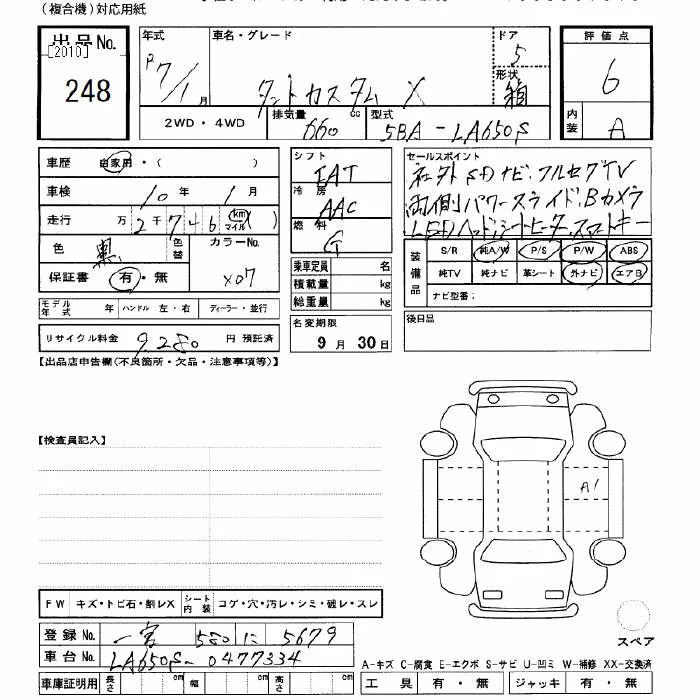 (複合機)対応用紙
出品No.
[2010]
248
年式
R7/1月
車名・グレード
タントカスタム X
ドア
5
形状
箱
評価点
6
内装
A
2WD・4WD
排気量
660
cc
型式
5BA-LA650S
車歴 自家用・( )
車検 10年 1月
走行 万2千746 km マイル( )
色 黒 色替
カラーNo.
X07
保証書 有・無
モデル年式 年 ハンドル 左・右 ディーラー・並行
リサイクル料金 9,280 円 預託済
シフト
IAT
冷房
AAC
燃料
G
乗車定員 名
積載量 kg
総重量 kg
名変期限
9月30日
セールスポイント
社外SDナビ・フルセグTV
両側パワースライド・Bカメラ
LEDヘッド・シートヒーター・スマートキー
装備品
S/R 純A/W P/S P/W ABS
純TV 純ナビ 革シート 外ナビ エアB
ナビ型番:
後日品
【出品店申告欄(不良箇所・欠品・注意事項等)】
【検査員記入】
A1
FW キズ・トビ石・割レX シート内装 コゲ・穴・汚レ・シミ・破レ・スレ
登録No. 一宮 580 に 5679
車台No. LA650S-0477334
車庫証明用 長さ cm 幅 cm 高さ cm
スペア
A-キズ C-腐食 E-エクボ S-サビ U-凹ミ W-補修 XX-交換済
工具 有・無 ジャッキ 有・無